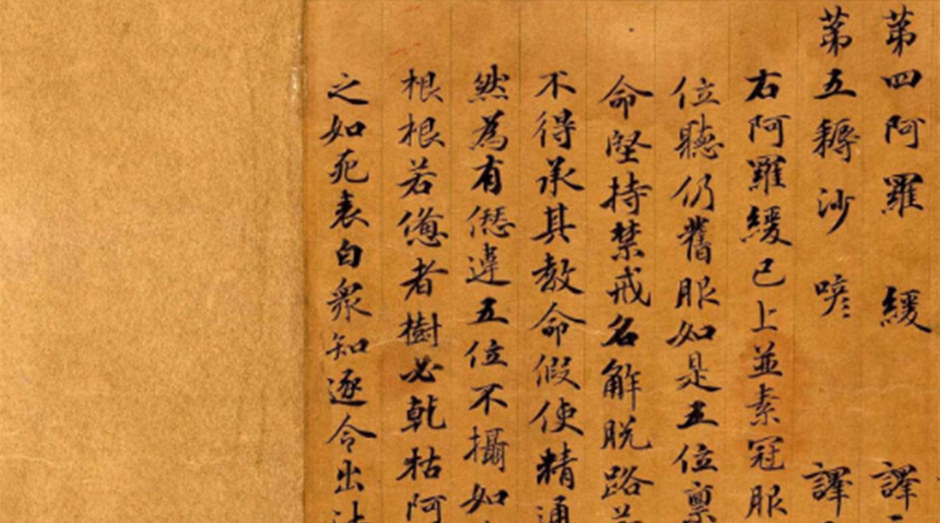 第四阿羅緩 譯
第五耨沙喭 譯
右阿羅緩已上並素冠服
位聽仍舊服如是五位稟
命堅持禁戒名解脫路若
不得承其教命假使精通
然為有僁違五位不攝如
根根若憊者樹必乾枯阿
之如死表白眾知逐令出